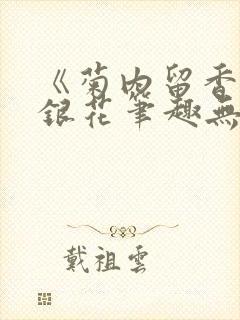 《菊内留香
銀花筆趣無
戴祖雲